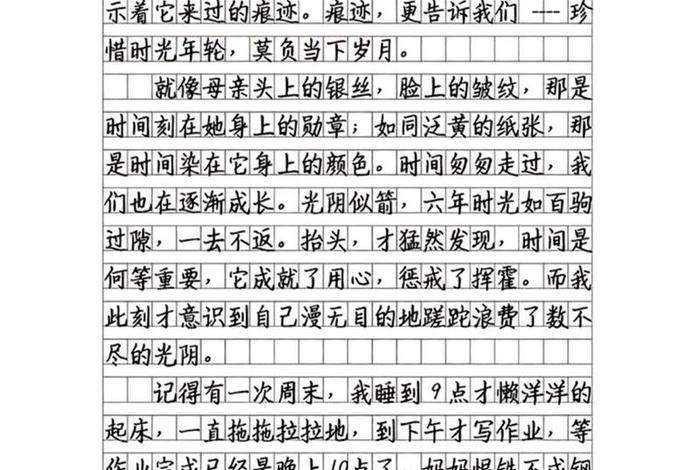 示着它来过的痕迹。痕迹，更告诉我们----珍
惜时光年轮，莫负当下岁月。
就像母亲头上的银丝，脸上的皱纹，那是
时间刻在她身上的勋章；如同泛黄的纸张，那
是时间染在它身上的颜色。时间匆匆走过，我
们也在逐渐成长。光阴似箭，六年时光如百驹
过隙，一去不返。抬头，才猛然发现，时间是
何等重要，它成就了用心，惩戒了挥霍。而我
此刻才意识到自己漫无目的地蹉跎浪费了数不
尽的光阴。
记得有一次周末，我睡到9点才懒洋洋的
起床，一直拖拖拉拉地，到下午才写作业，等
作业完成已经是晚上10点了。妈妈恨铁不成钢